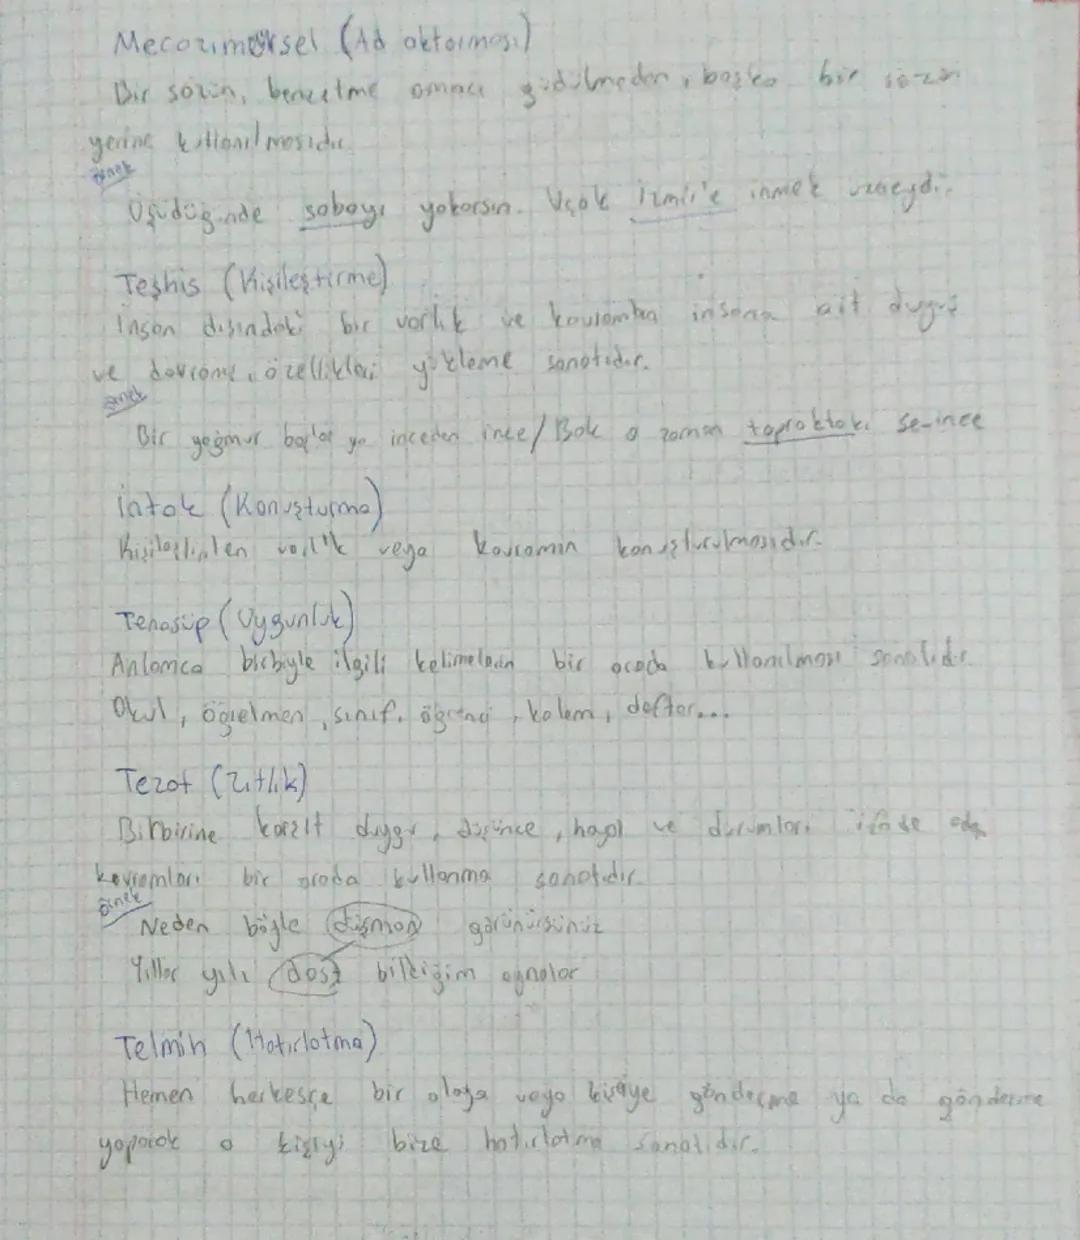 Mecazımürsel (Ad aktarması)
Bir sözün, benzetme amacı güdülmeden, başka bir sözün
yerine kullanılmasıdır
örnek
Üşüdüğünde sobayı yakarsın. Uçak İzmir'e inmek üzereydi.
Teşhis (Kişileştirme)
İnsan dışındaki bir varlık ve kavramlara insana ait duygu
ve davranış özellikleri yükleme sanatıdır.
örnek
Bir yağmur başlar ya inceden ince/Bak o zaman topraktaki sevince
İntak (Konuşturma)
Kişileştirilen varlık veya kavramın konuşturulmasıdır.
Tenasüp (Uygunluk)
Anlamca birbiyle ilgili kelimelerin bir arada kullanılması sanatıdır.
Okul, öğretmen, sınıf, öğrenci, kalem, defter...
Tezat (Zıtlık)
Birbirine karşıt duygu, düşünce, hayal ve durumları ifade eden
kavramları bir arada kullanma sanatıdır.
örnek
Neden böyle düşman görünürsünüz
Yıllar yılı dost bildiğim aynalar
Telmih (Hatırlatma)
Hemen herkesçe bir olaya veya kişiye gönderme ya da gönderme
yaparak o kişiyi bize hatırlatma sanatıdır.